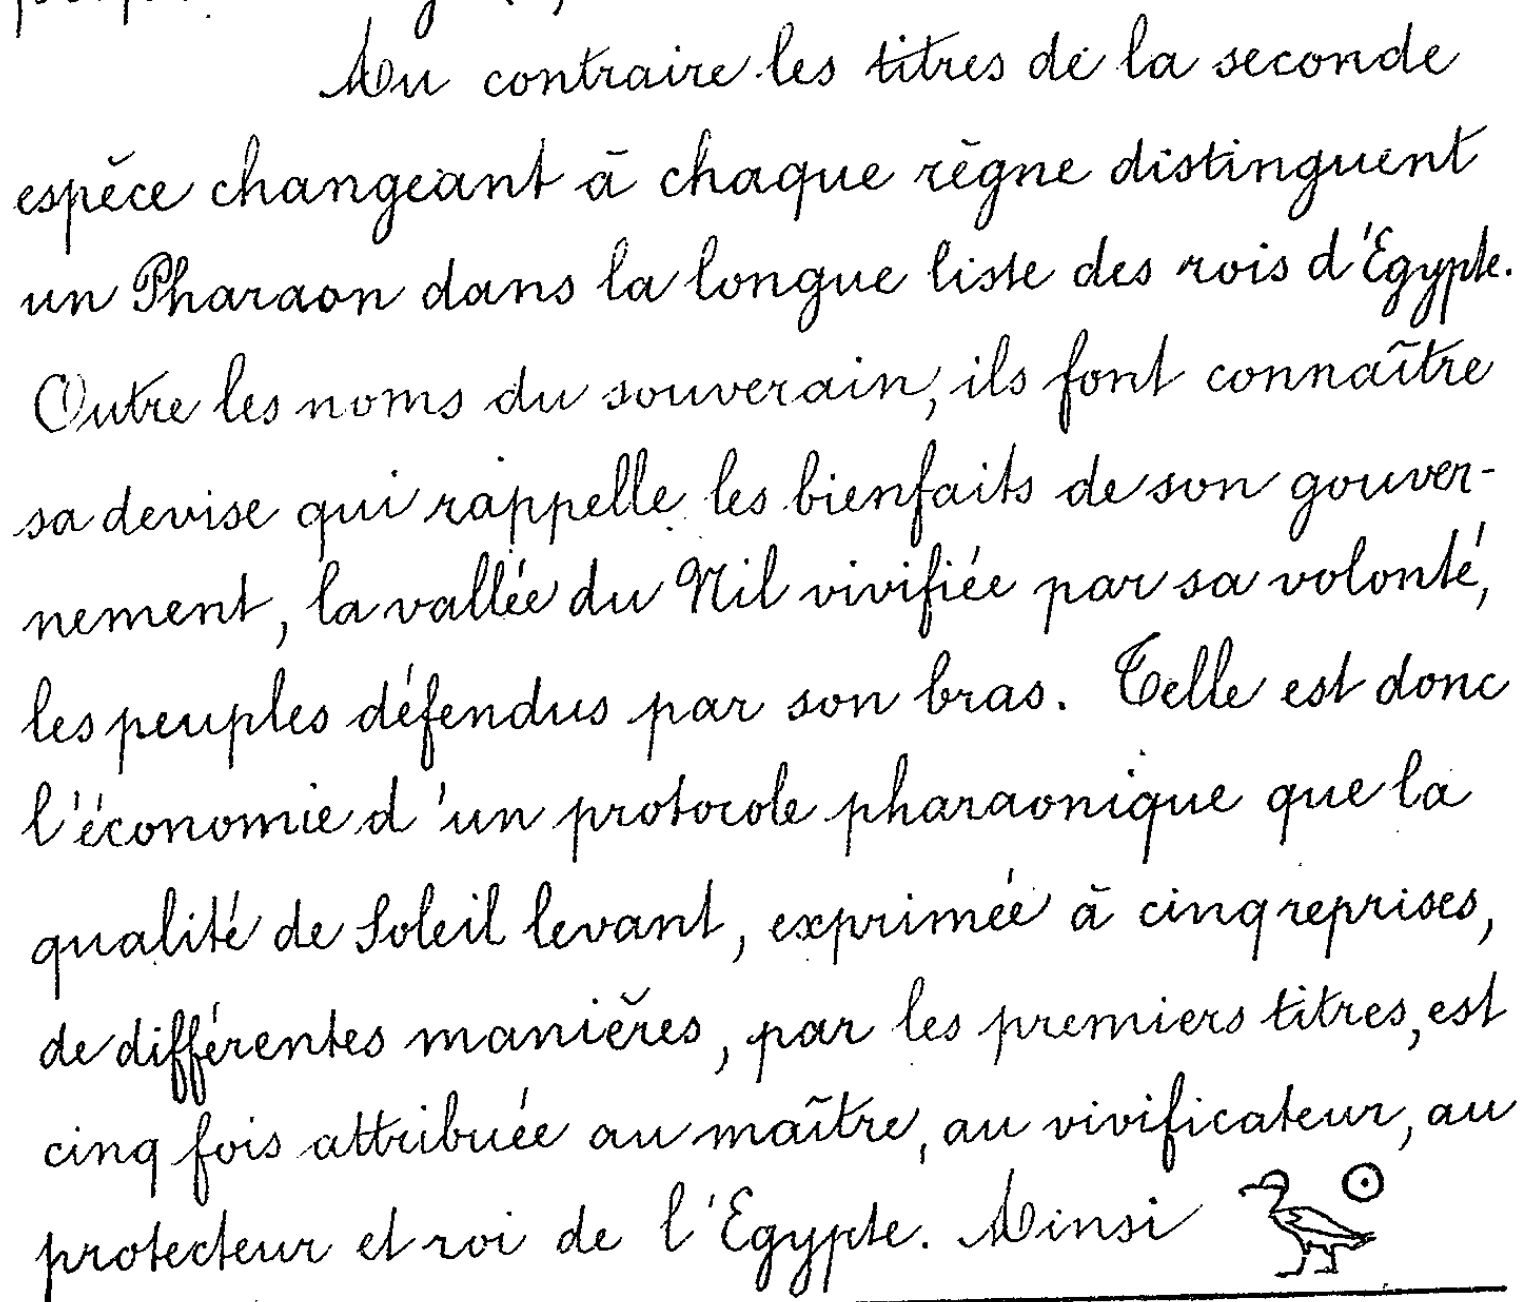 Au contraire les titres de la seconde
espèce changeant à chaque règne distinguent
un Pharaon dans la longue liste des rois d'Egypte.
Outre les noms du souverain, ils font connaître
sa devise qui rappelle les bienfaits de son gouver-
nement, la vallée du Nil vivifiée par sa volonté,
les peuples défendus par son bras. Telle est donc
l'économie d'un protocole pharaonique que la
qualité de Soleil levant, exprimée à cinq reprises,
de différentes manières, par les premiers titres, est
cinq fois attribuée au maître, au vivificateur, au
protecteur et roi de l'Egypte. Ainsi 𓅭𓇳